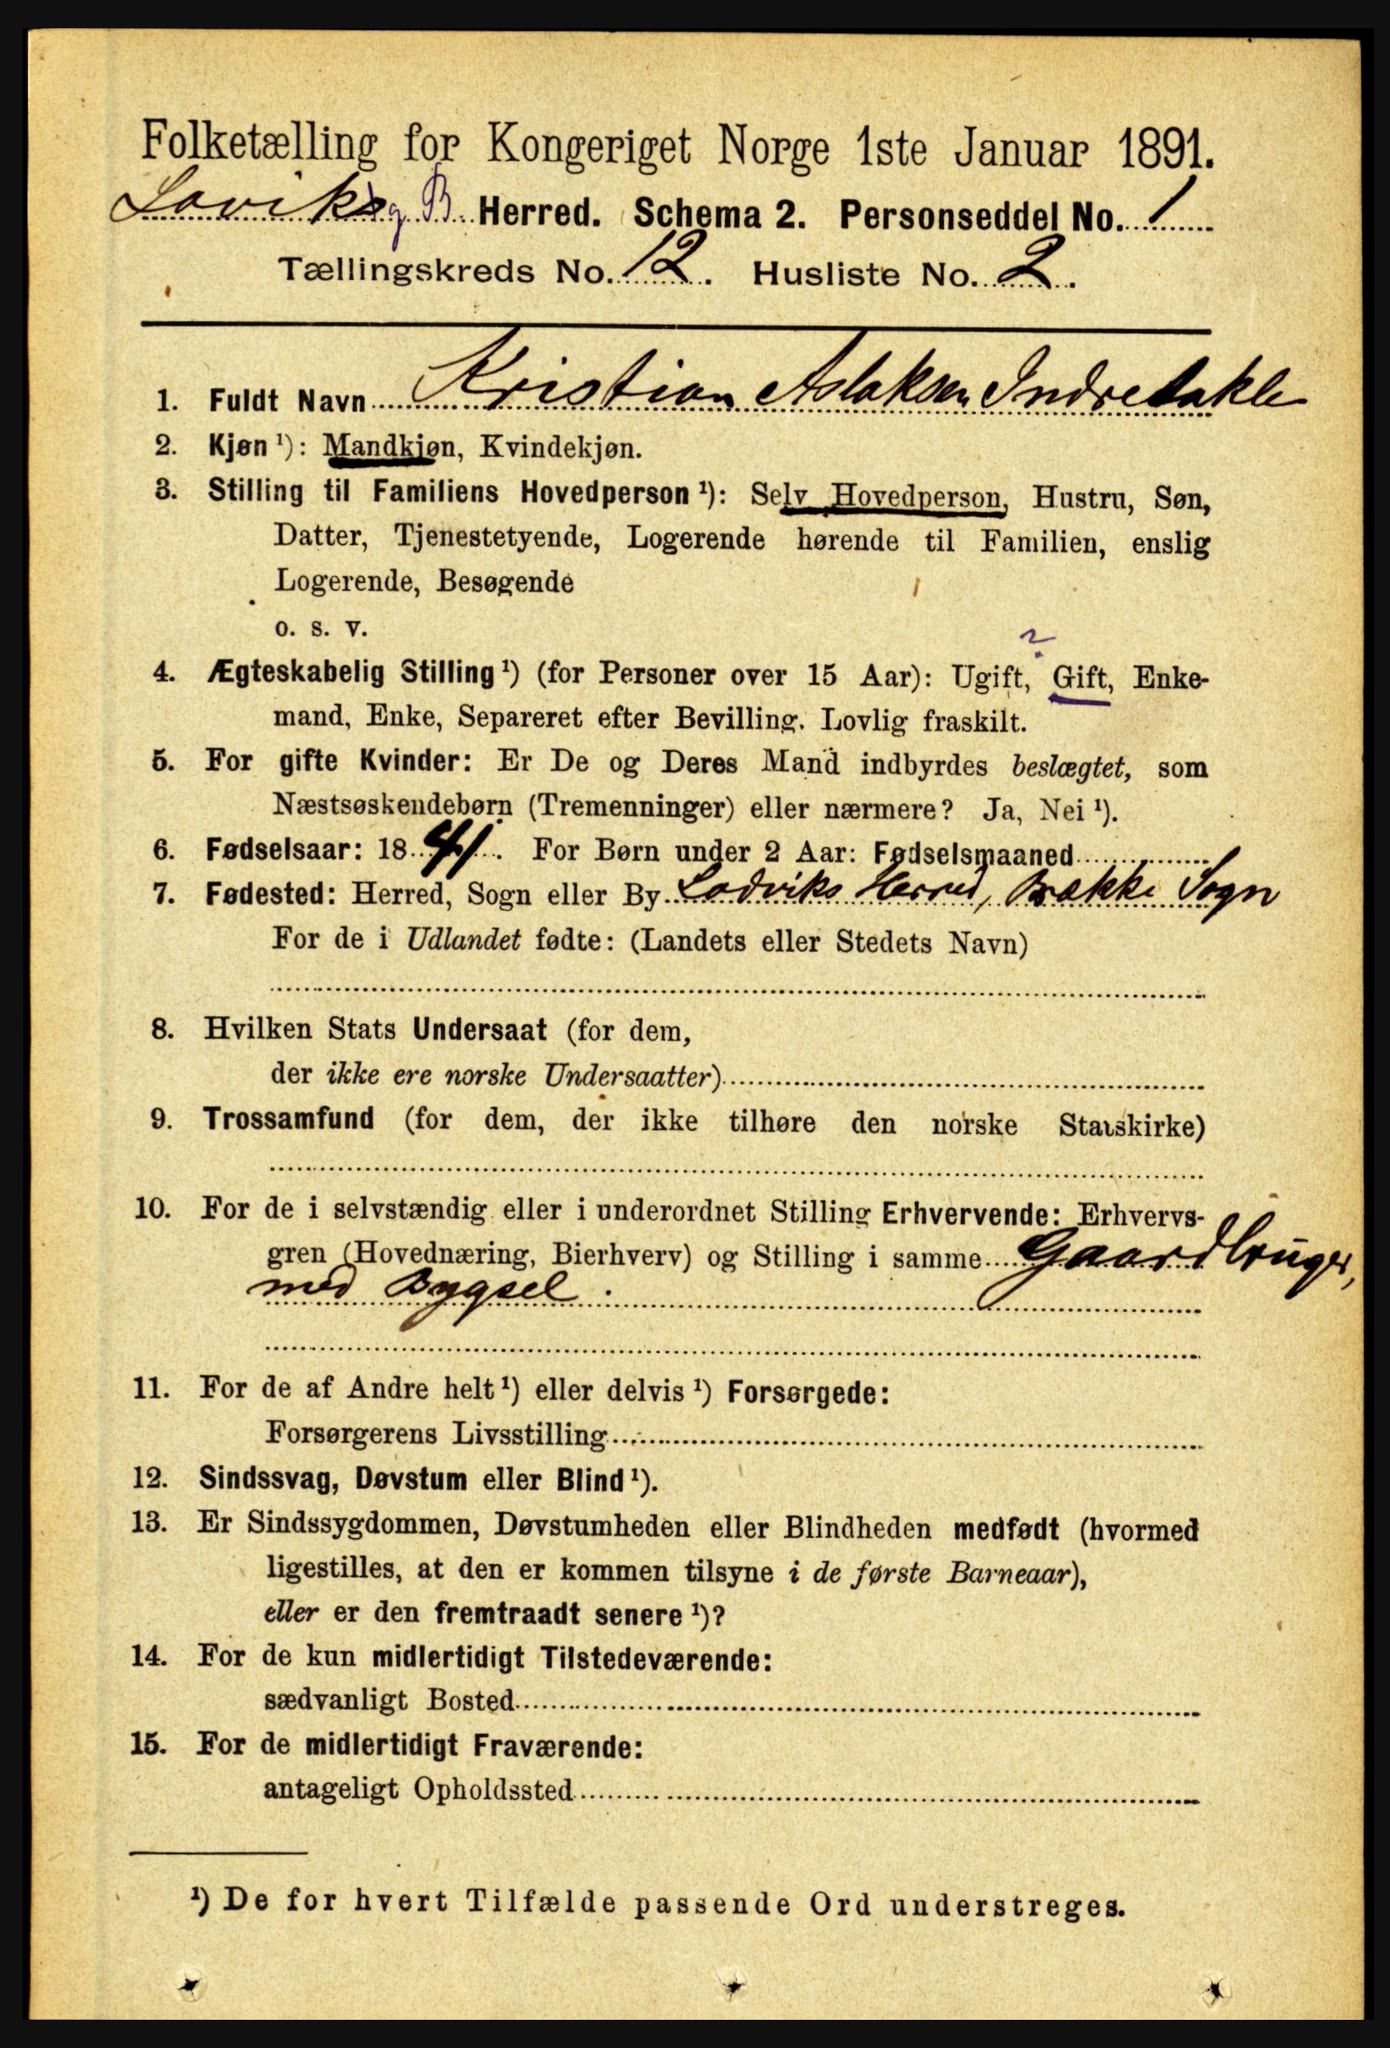 Folketælling for Kongeriget Norge 1ste Januar 1891.
Laviks og B. Herred. Schema 2. Personseddel No. 1
Tællingskreds No. 12. Husliste No. 2.
1. Fuldt Navn Kristian Aslaksen Indretakle
2. Kjøn ¹): Mandkjøn, Kvindekjøn.
3. Stilling til Familiens Hovedperson ¹): Selv Hovedperson, Hustru, Søn,
Datter, Tjenestetyende, Logerende hørende til Familien, enslig
Logerende, Besøgende
o. s. v.
?
4. Ægteskabelig Stilling ¹) (for Personer over 15 Aar): Ugift, Gift, Enke-
mand, Enke, Separeret efter Bevilling. Lovlig fraskilt.
5. For gifte Kvinder: Er De og Deres Mand indbyrdes beslægtet, som
Næstsøskendebørn (Tremenninger) eller nærmere? Ja, Nei ¹).
6. Fødselsaar: 1841. For Børn under 2 Aar: Fødselsmaaned
7. Fødested: Herred, Sogn eller By Ladviks Herred, Brække Sogn
For de i Udlandet fødte: (Landets eller Stedets Navn)
8. Hvilken Stats Undersaat (for dem,
der ikke ere norske Undersaatter)
9. Trossamfund (for dem, der ikke tilhøre den norske Statskirke)
10. For de i selvstændig eller i underordnet Stilling Erhvervende: Erhvervs-
gren (Hovednæring, Bierhverv) og Stilling i samme Gaardbruger,
med Bygsel.
11. For de af Andre helt ¹) eller delvis ¹) Forsørgede:
Forsørgerens Livsstilling
12. Sindssvag, Døvstum eller Blind ¹).
13. Er Sindssygdommen, Døvstumheden eller Blindheden medfødt (hvormed
ligestilles, at den er kommen tilsyne i de første Barneaar),
eller er den fremtraadt senere ¹)?
14. For de kun midlertidigt Tilstedeværende:
sædvanligt Bosted
15. For de midlertidigt Fraværende:
antageligt Opholdssted
¹) De for hvert Tilfælde passende Ord understreges.